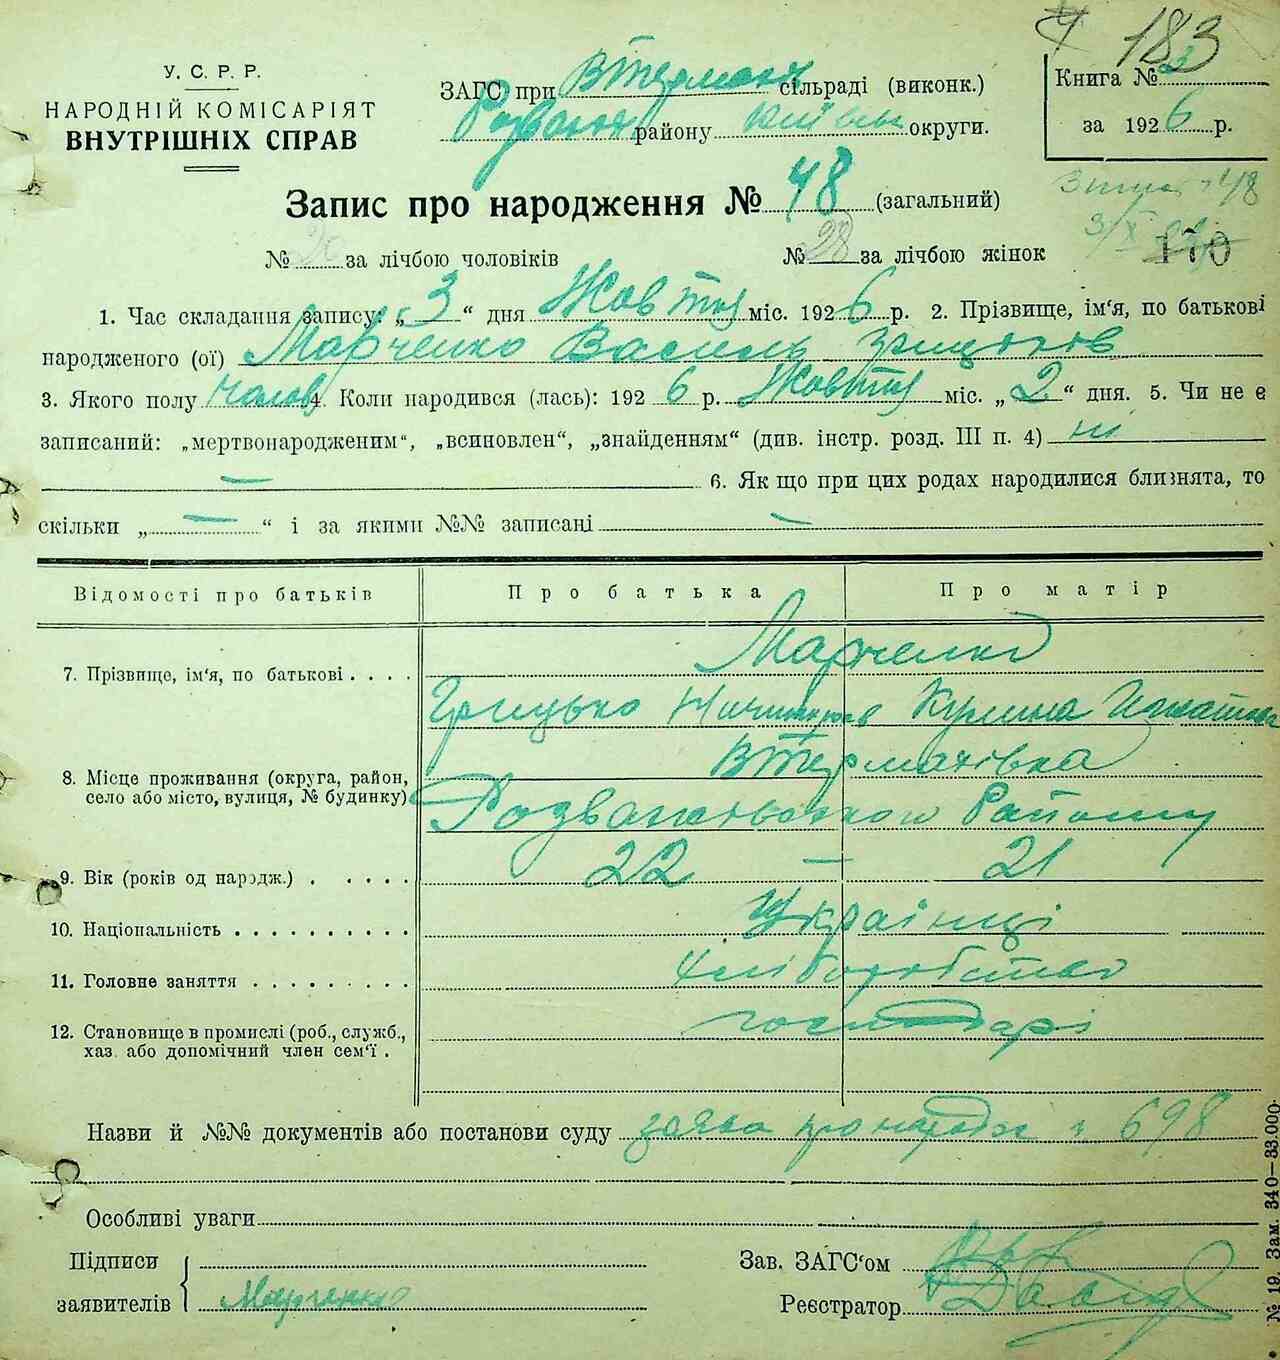 183
У. С. Р. Р.
НАРОДНІЙ КОМІСАРІЯТ
ВНУТРІШНІХ СПРАВ
ЗАГС при сільраді (виконк.)
району округи.
Книга №
за 1926 р.
Запис про народження № 48 (загальний)
48
3/X
170
№ за лічбою чоловіків № 28 за лічбою жінок
1. Час складання запису: „3“ дня Жовтня міс. 1926 р. 2. Прізвище, ім'я, по батькові
народженого (ої) Марченко Василь Грицьков
3. Якого полу чолов 4. Коли народився (лась): 1926 р. Жовтня міс. „2“ дня. 5. Чи не є
записаний: „мертвонародженим“, „всиновлен“, „знайденням“ (див. інстр. розд. III п. 4) ні
— 6. Як що при цих родах народилися близнята, то
скільки „—“ і за якими №№ записані —
Відомості про батьків Про батька Про матір
7. Прізвище, ім'я, по батькові . . . . Марченко
Грицько Кулина
8. Місце проживання (округа, район, село або місто, вулиця, № будинку) Втерматівка
Розважівського Району
9. Вік (років од народж.) . . . . . 22 — 21
10. Національність . . . . . . . . . . Українці
11. Головне заняття . . . . . . . . . хліборобство
12. Становище в промислі (роб., служб., господарі
хаз. або допомічний член сем'ї .
Назви й №№ документів або постанови суду заява про народж 698
Особливі уваги
Підписи
заявителів Марченко
Зав. ЗАГС'ом
Реєстратор
№ 19. Зам. 340—33.000.